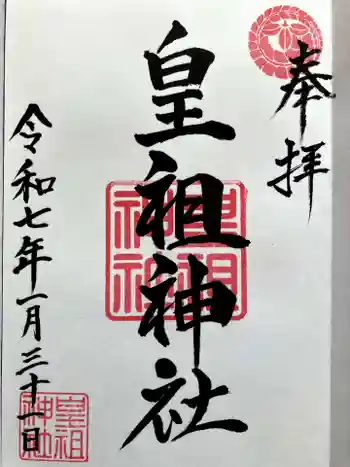 奉拝
皇祖神社
皇祖神社
令和七年一月三十一日
皇祖神社